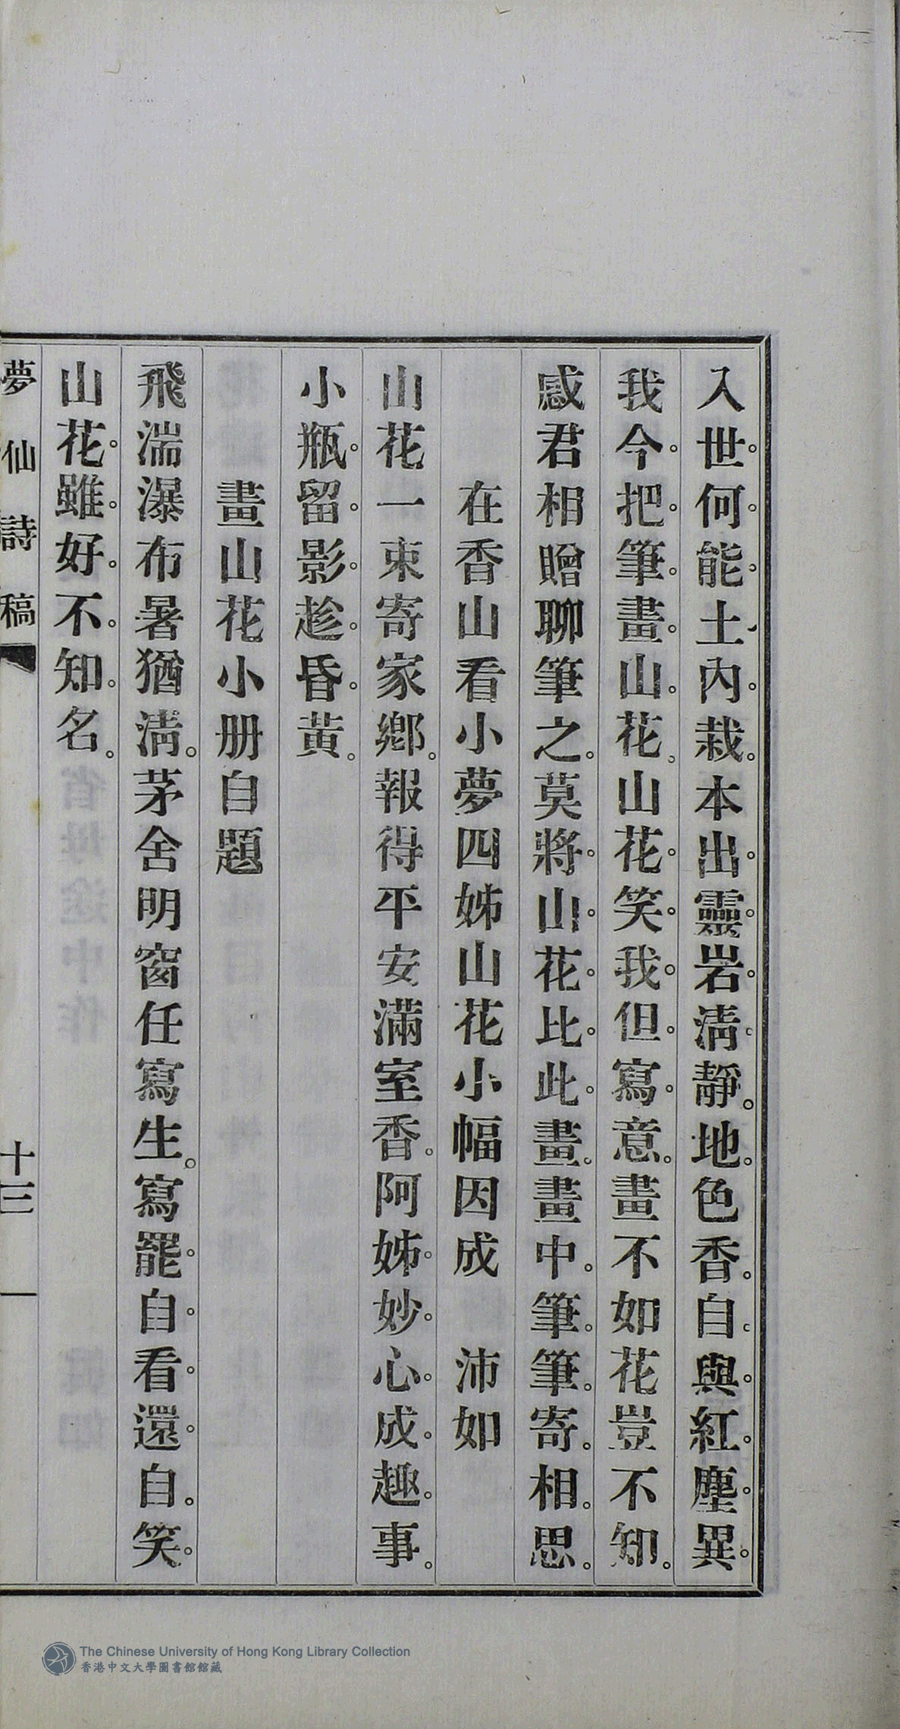 入世何能土內栽本出靈岩清靜地色香自與紅塵異
我今把筆畫山花山花笑我但寫意畫不如花豈不知
感君相贈聊筆之莫將山花比此畫畫中筆筆寄相思
在香山看小夢四姊山花小幅因成 沛如
山花一束寄家鄉報得平安滿室香阿姊妙心成趣事
小瓶留影趁昏黃
畫山花小册自題
飛湍瀑布暑猶清茅舍明窗任寫生寫罷自看還自笑
山花雖好不知名
夢仙詩稿 十三
The Chinese University of Hong Kong Library Collection
香港中文大學圖書館館藏